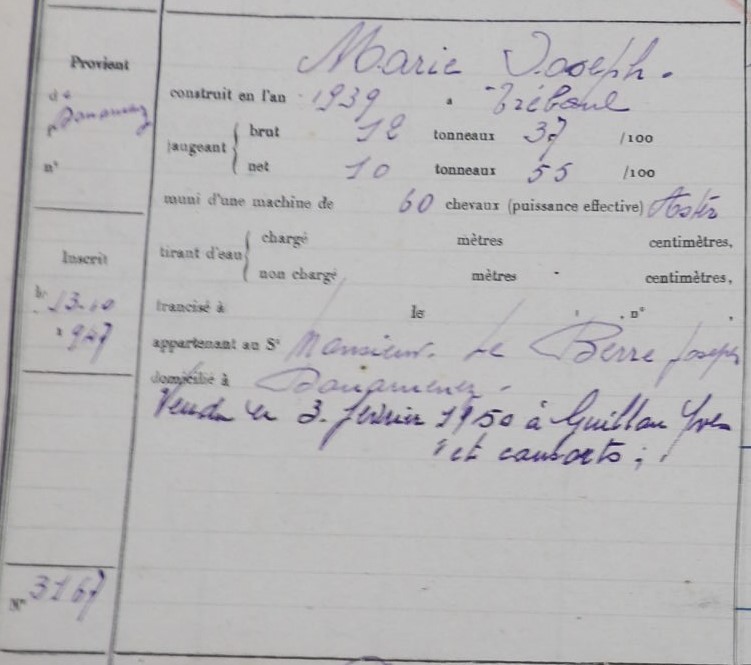 Marie Joseph.
Provient
de Douarnenez
n°
construit en l'an 1939 à Tréboul
jaugeant { brut 12 tonneaux 37 /100
net 10 tonneaux 55 /100
muni d'une machine de 60 chevaux (puissance effective) Aster
tirant d'eau { chargé mètres centimètres,
non chargé mètres centimètres,
Inscrit
le 13-10
1947
francisé à le , n° ,
appartenant au Sr Monsieur. Le Berre Joseph
domicilié à Douarnenez.
Vendu le 3. février 1950 à Guillou Yves
et consorts ;
N° 3167